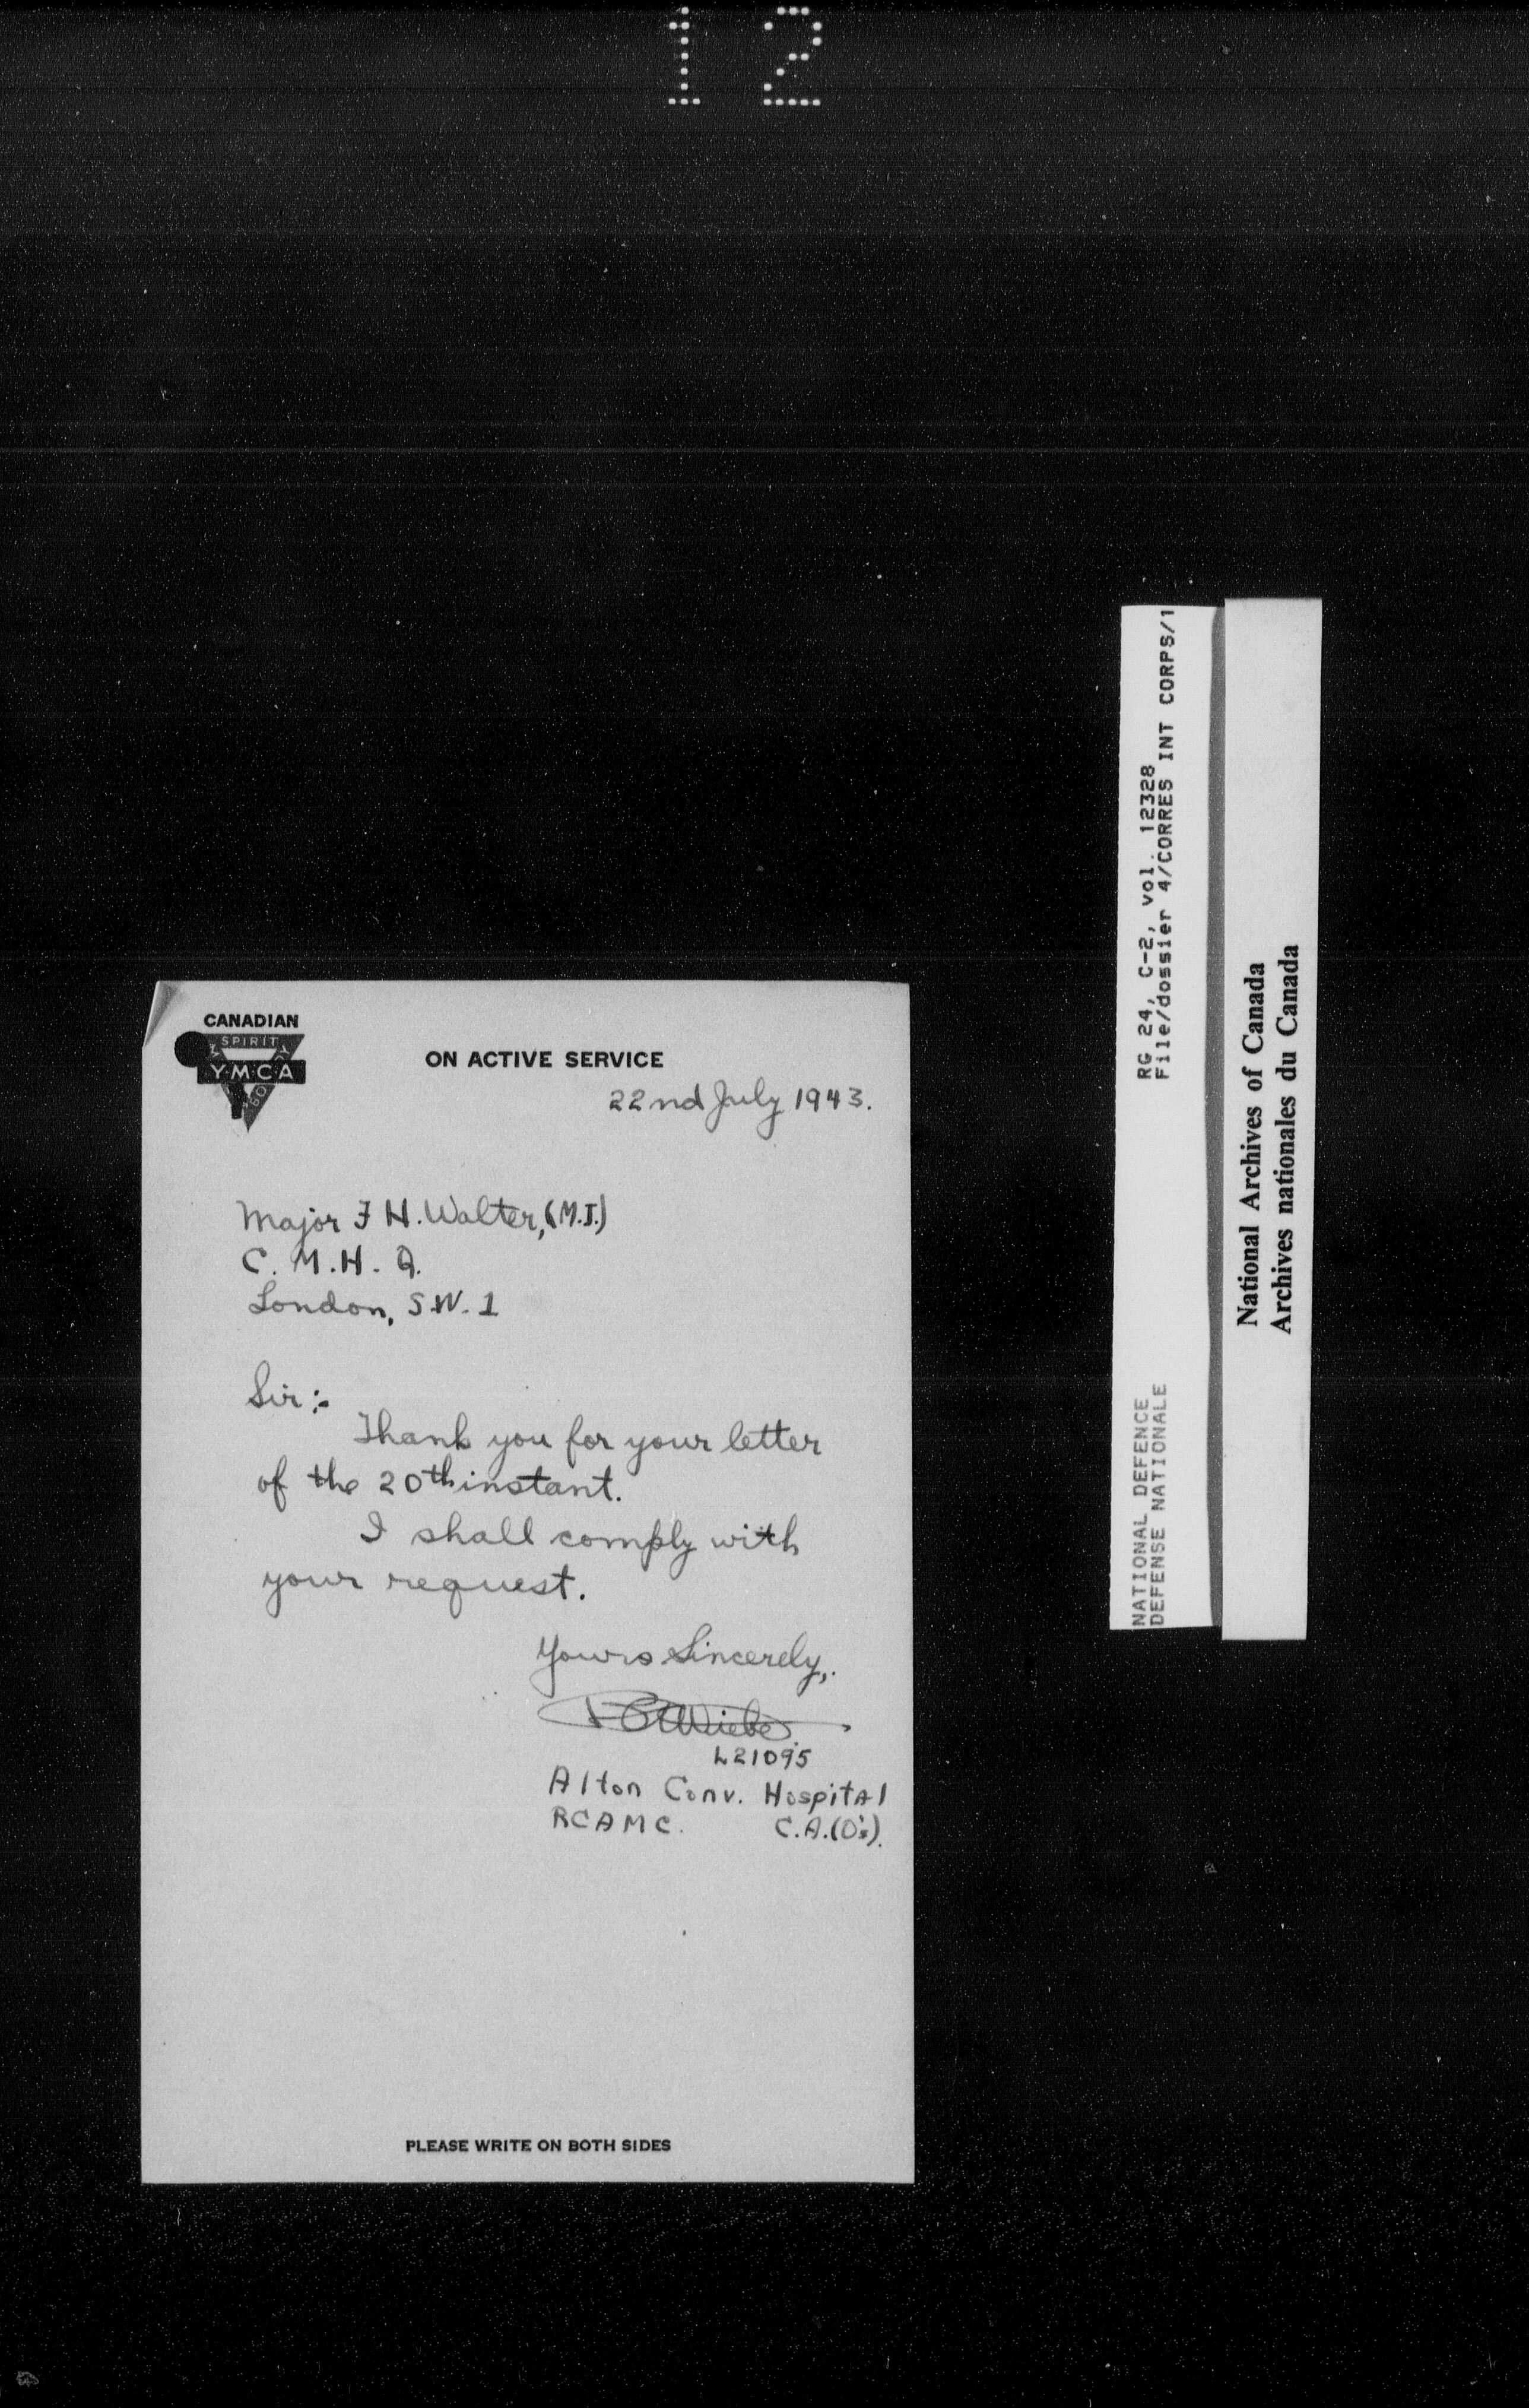 12
CANADIAN
SPIRIT
Y·M·C·A
ON ACTIVE SERVICE
22nd July 1943.
Major F H. Walter, (M.I.)
C. M. H. Q.
London, S.W. 1
Sir:-
Thank you for your letter
of the 20th instant.
I shall comply with
your request.
Yours Sincerely,
Wiebe
L21095
Alton Conv. Hospital
RCAMC. C.A.(O's).
PLEASE WRITE ON BOTH SIDES
RG 24, C-2, vol. 12328
File/dossier 4/CORRES INT CORPS/1
NATIONAL DEFENCE
DEFENSE NATIONALE
National Archives of Canada
Archives nationales du Canada